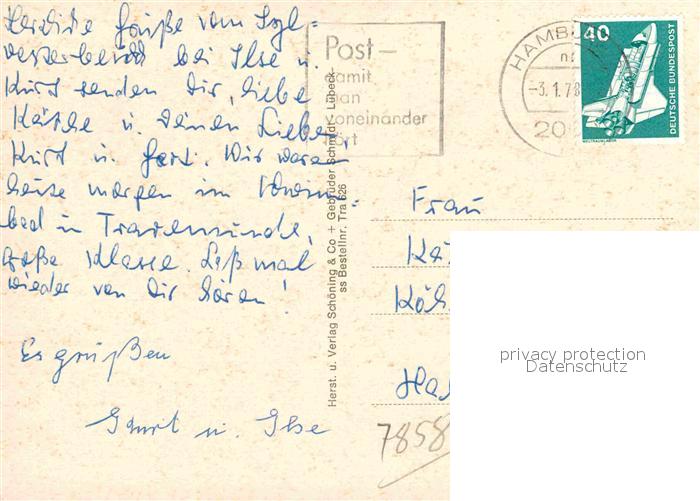 Herzliche Grüße vom Syl=
vesterbesuch bei Ilse u.
Kurt senden Dir, liebe
Käthe u. Deinen Lieben
Kurt u. Gert. Wir waren
heute morgen im Schwimm=
bad in Travemünde,
große Klasse. Laß mal
wieder von Dir hören!
Es grüßen
Kurt u. Ilse
Post-
damit
man
voneinander
hört
HAMBURG
-3.1.78
20
40
DEUTSCHE BUNDESPOST
WELTRAUMLABOR
Herst. u. Verlag Schöning & Co + Gebrüder Schmidt, Lübeck
ss Bestellnr. Tra 626
Frau
Kä
Köh
Ha
7858
privacy protection
Datenschutz